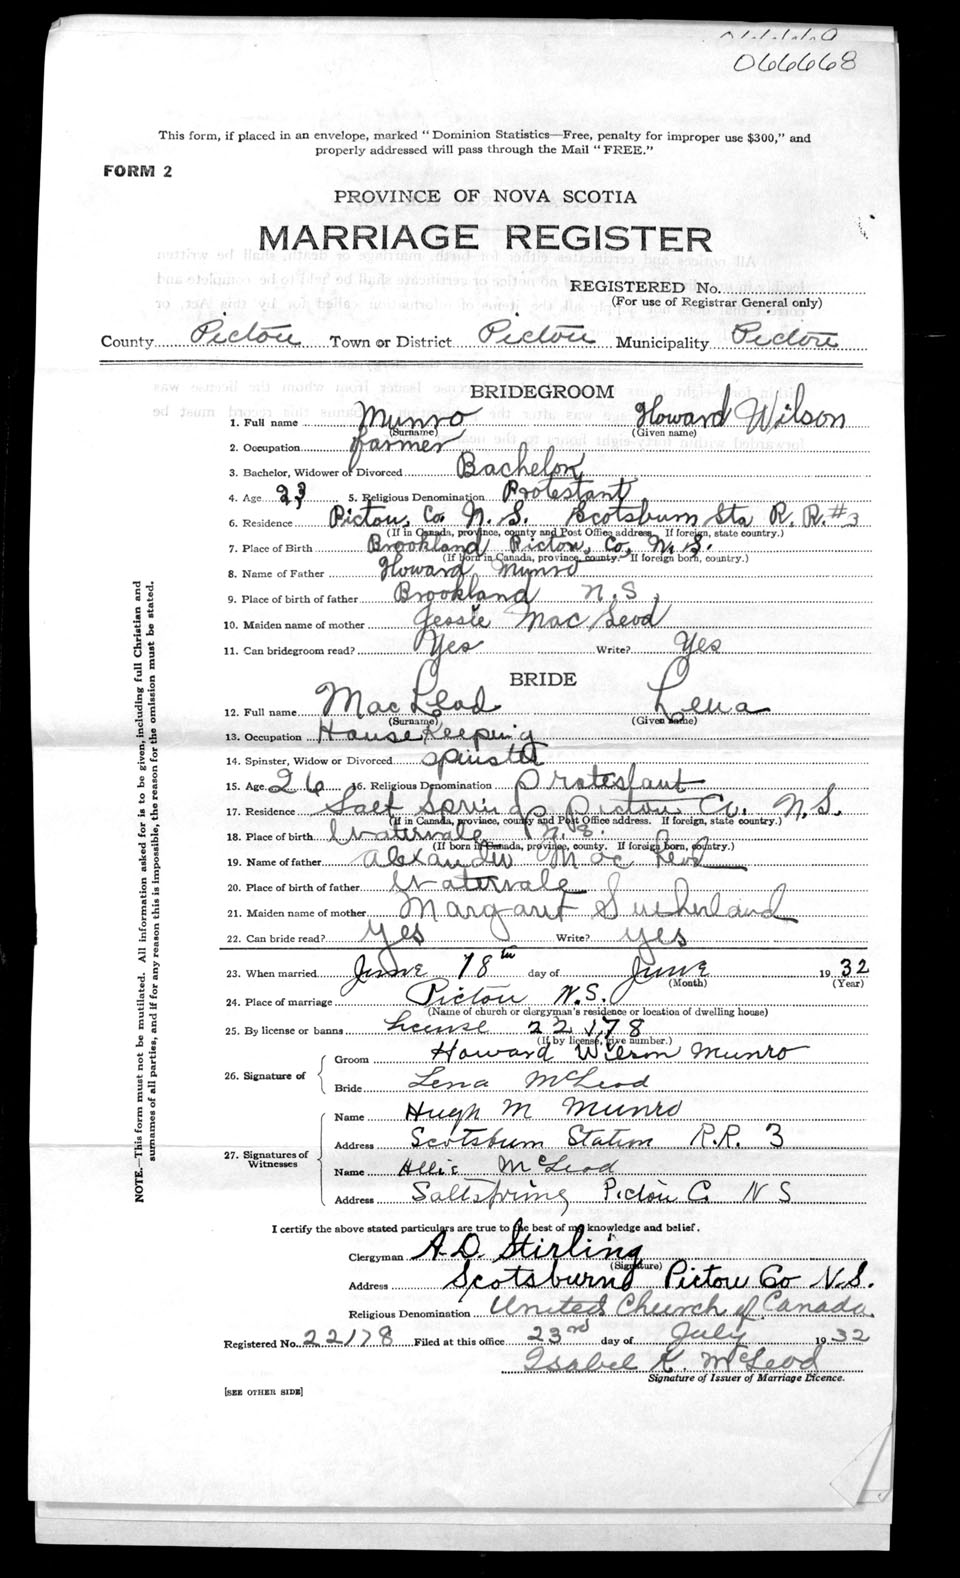 066668
This form, if placed in an envelope, marked "Dominion Statistics—Free, penalty for improper use $300," and
properly addressed will pass through the Mail "FREE."
FORM 2
PROVINCE OF NOVA SCOTIA
MARRIAGE REGISTER
REGISTERED No.
(For use of Registrar General only)
County Pictou Town or District Pictou Municipality Pictou
BRIDEGROOM
1. Full name Munro Howard Wilson
(Surname) (Given name)
2. Occupation farmer
3. Bachelor, Widower or Divorced Bachelor
4. Age 23 5. Religious Denomination Protestant
6. Residence Pictou, Co. N. S. Scotsburn Sta R. R. #3
(If in Canada, province, county and Post Office address. If foreign, state country.)
7. Place of Birth Brookland Pictou, Co, N. S.
(If born in Canada, province, county. If foreign born, country.)
8. Name of Father Howard Munro
9. Place of birth of father Brookland N.S.
10. Maiden name of mother Jessie MacLeod
11. Can bridegroom read? Yes Write? Yes
BRIDE
12. Full name MacLeod Lena
(Surname) (Given Name)
13. Occupation House Keeping
14. Spinster, Widow or Divorced spinster
15. Age 26 16. Religious Denomination Protestant
17. Residence Salt Springs Pictou Co. N.S.
(If in Canada, province, county and Post Office address. If foreign, state country.)
18. Place of birth Watervale N.S.
(If born in Canada, province, county. If foreign born, country.)
19. Name of father Alexander MacLeod
20. Place of birth of father Watervale
21. Maiden name of mother Margaret Sutherland
22. Can bride read? yes Write? yes
23. When married June 18th day of June 1932
(Month) (Year)
24. Place of marriage Pictou N.S.
(Name of church or clergyman's residence or location of dwelling house)
25. By license or banns License 22178
(If by license, give number.)
26. Signature of Groom Howard Wilson Munro
Bride Lena McLeod
27. Signatures of Witnesses Name Hugh M Munro
Address Scotsburn Station R.R. 3
Name Allie McLeod
Address Saltsprings Pictou C. N S
I certify the above stated particulars are true to the best of my knowledge and belief.
Clergyman A. D. Stirling
(Signature)
Address Scotsburn Pictou Co N.S.
Religious Denomination United Church of Canada
Registered No. 22178 Filed at this office 23rd day of July 1932
Isabel K. McLeod
Signature of Issuer of Marriage Licence.
[SEE OTHER SIDE]
NOTE.—This form must not be mutilated. All information asked for is to be given, including full Christian and
surnames of all parties, and if for any reason this is impossible, the reason for the omission must be stated.